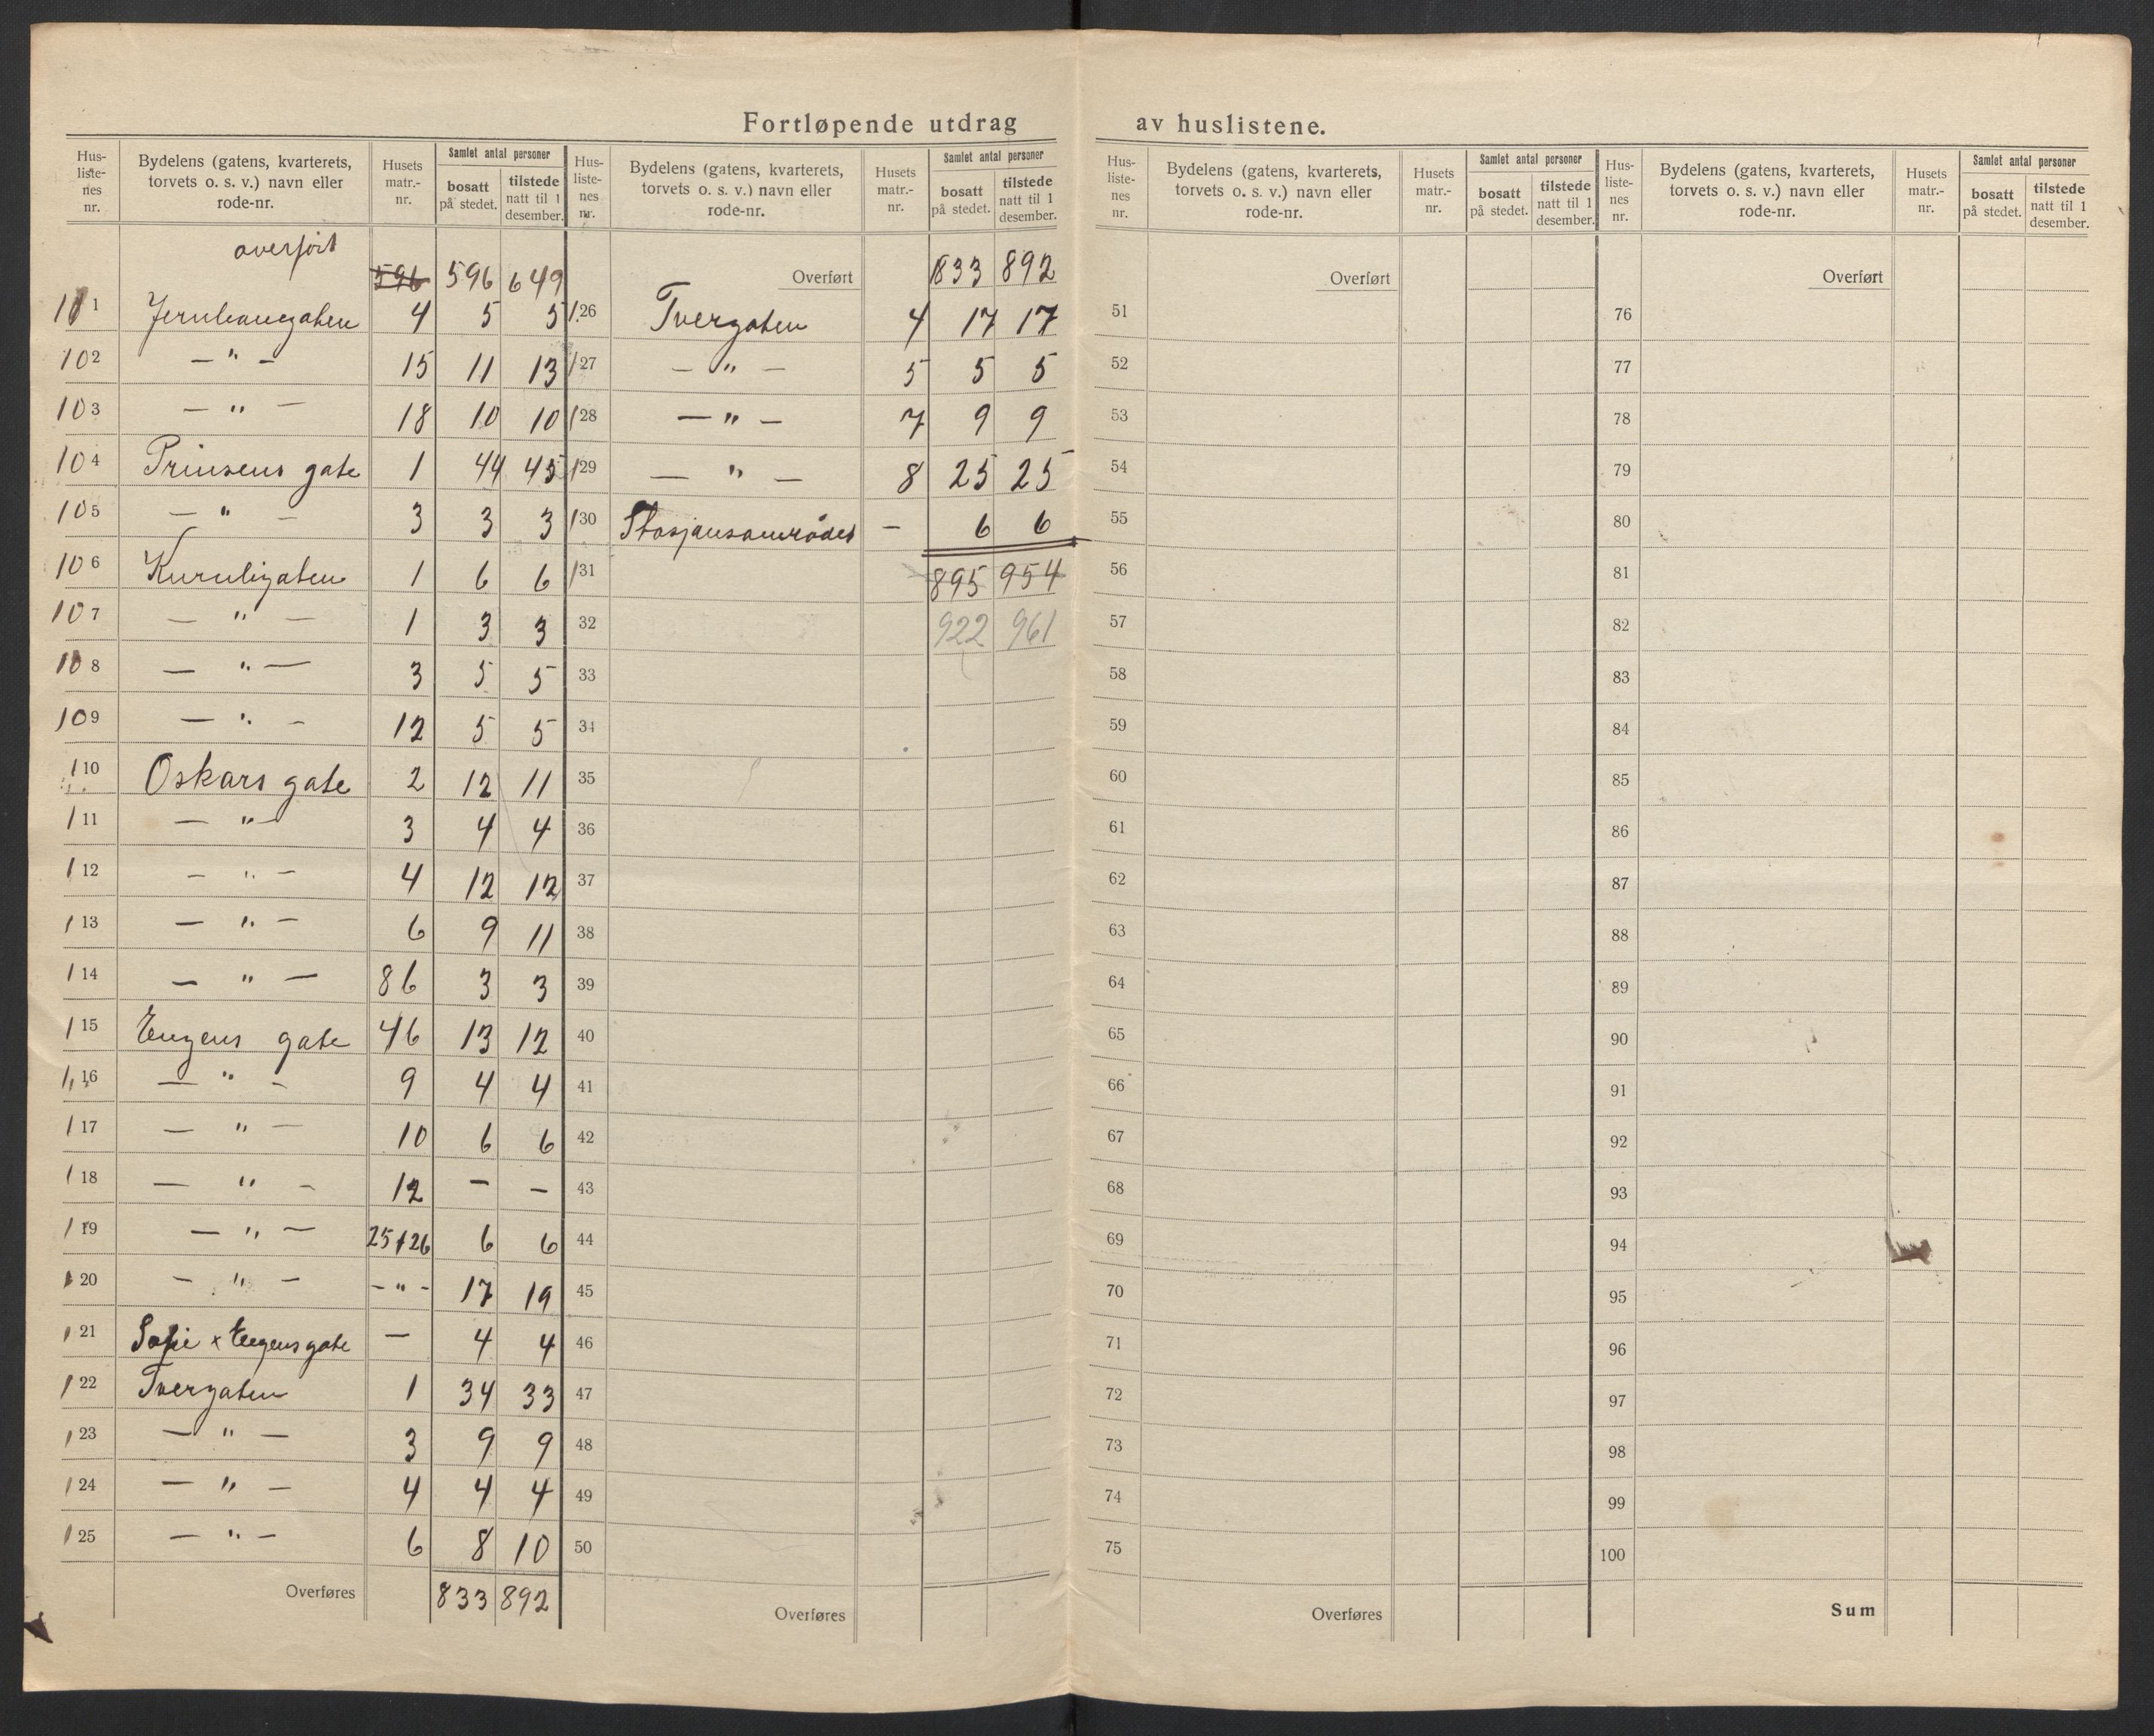 Fortløpende utdrag av huslistene.
Hus-listenes nr. Bydelens (gatens, kvarterets, torvets o. s. v.) navn eller rode-nr. Husets matr.-nr. Samlet antal personer bosatt på stedet. tilstede natt til 1 desember.
overført 596 596 649
101 Jernbanegaten 4 5 5
102 — " — 15 11 13
103 — " — 18 10 10
104 Prinsens gate 1 44 45
105 — " — 3 3 3
106 1 6 6
107 — " — 1 3 3
108 — " — 3 5 5
109 — " — 12 5 5
110 Oskars gate 2 12 11
111 — " — 3 4 4
112 — " — 4 12 12
113 — " — 6 9 11
114 — " — 86 3 3
115 Eugens gate 46 13 12
116 — " — 9 4 4
117 — " — 10 6 6
118 — " — 12 — —
119 — " — 25+26 6 6
120 — " — - " - 17 19
121 Sofie x Eugens gate — 4 4
122 Tvergaten 1 34 33
123 — " — 3 9 9
124 — " — 4 4 4
125 — " — 6 8 10
Overføres 833 892
Hus-listenes nr. Bydelens (gatens, kvarterets, torvets o. s. v.) navn eller rode-nr. Husets matr.-nr. Samlet antal personer bosatt på stedet. tilstede natt til 1 desember.
Overført 833 892
126 Tvergaten 4 17 17
127 — " — 5 5 5
128 — " — 7 9 9
129 — " — 8 25 25
130 Stasjonsområdet — 6 6
131 895 954
32 922 961
33
34
35
36
37
38
39
40
41
42
43
44
45
46
47
48
49
50
Overføres
Hus-liste-nes nr. Bydelens (gatens, kvarterets, torvets o. s. v.) navn eller rode-nr. Husets matr.-nr. Samlet antal personer bosatt på stedet. tilstede natt til 1 desember.
Overført
51
52
53
54
55
56
57
58
59
60
61
62
63
64
65
66
67
68
69
70
71
72
73
74
75
Overføres
Hus-liste-nes nr. Bydelens (gatens, kvarterets, torvets o. s. v.) navn eller rode-nr. Husets matr.-nr. Samlet antal personer bosatt på stedet. tilstede natt til 1 desember.
Overført
76
77
78
79
80
81
82
83
84
85
86
87
88
89
90
91
92
93
94
95
96
97
98
99
100
Sum